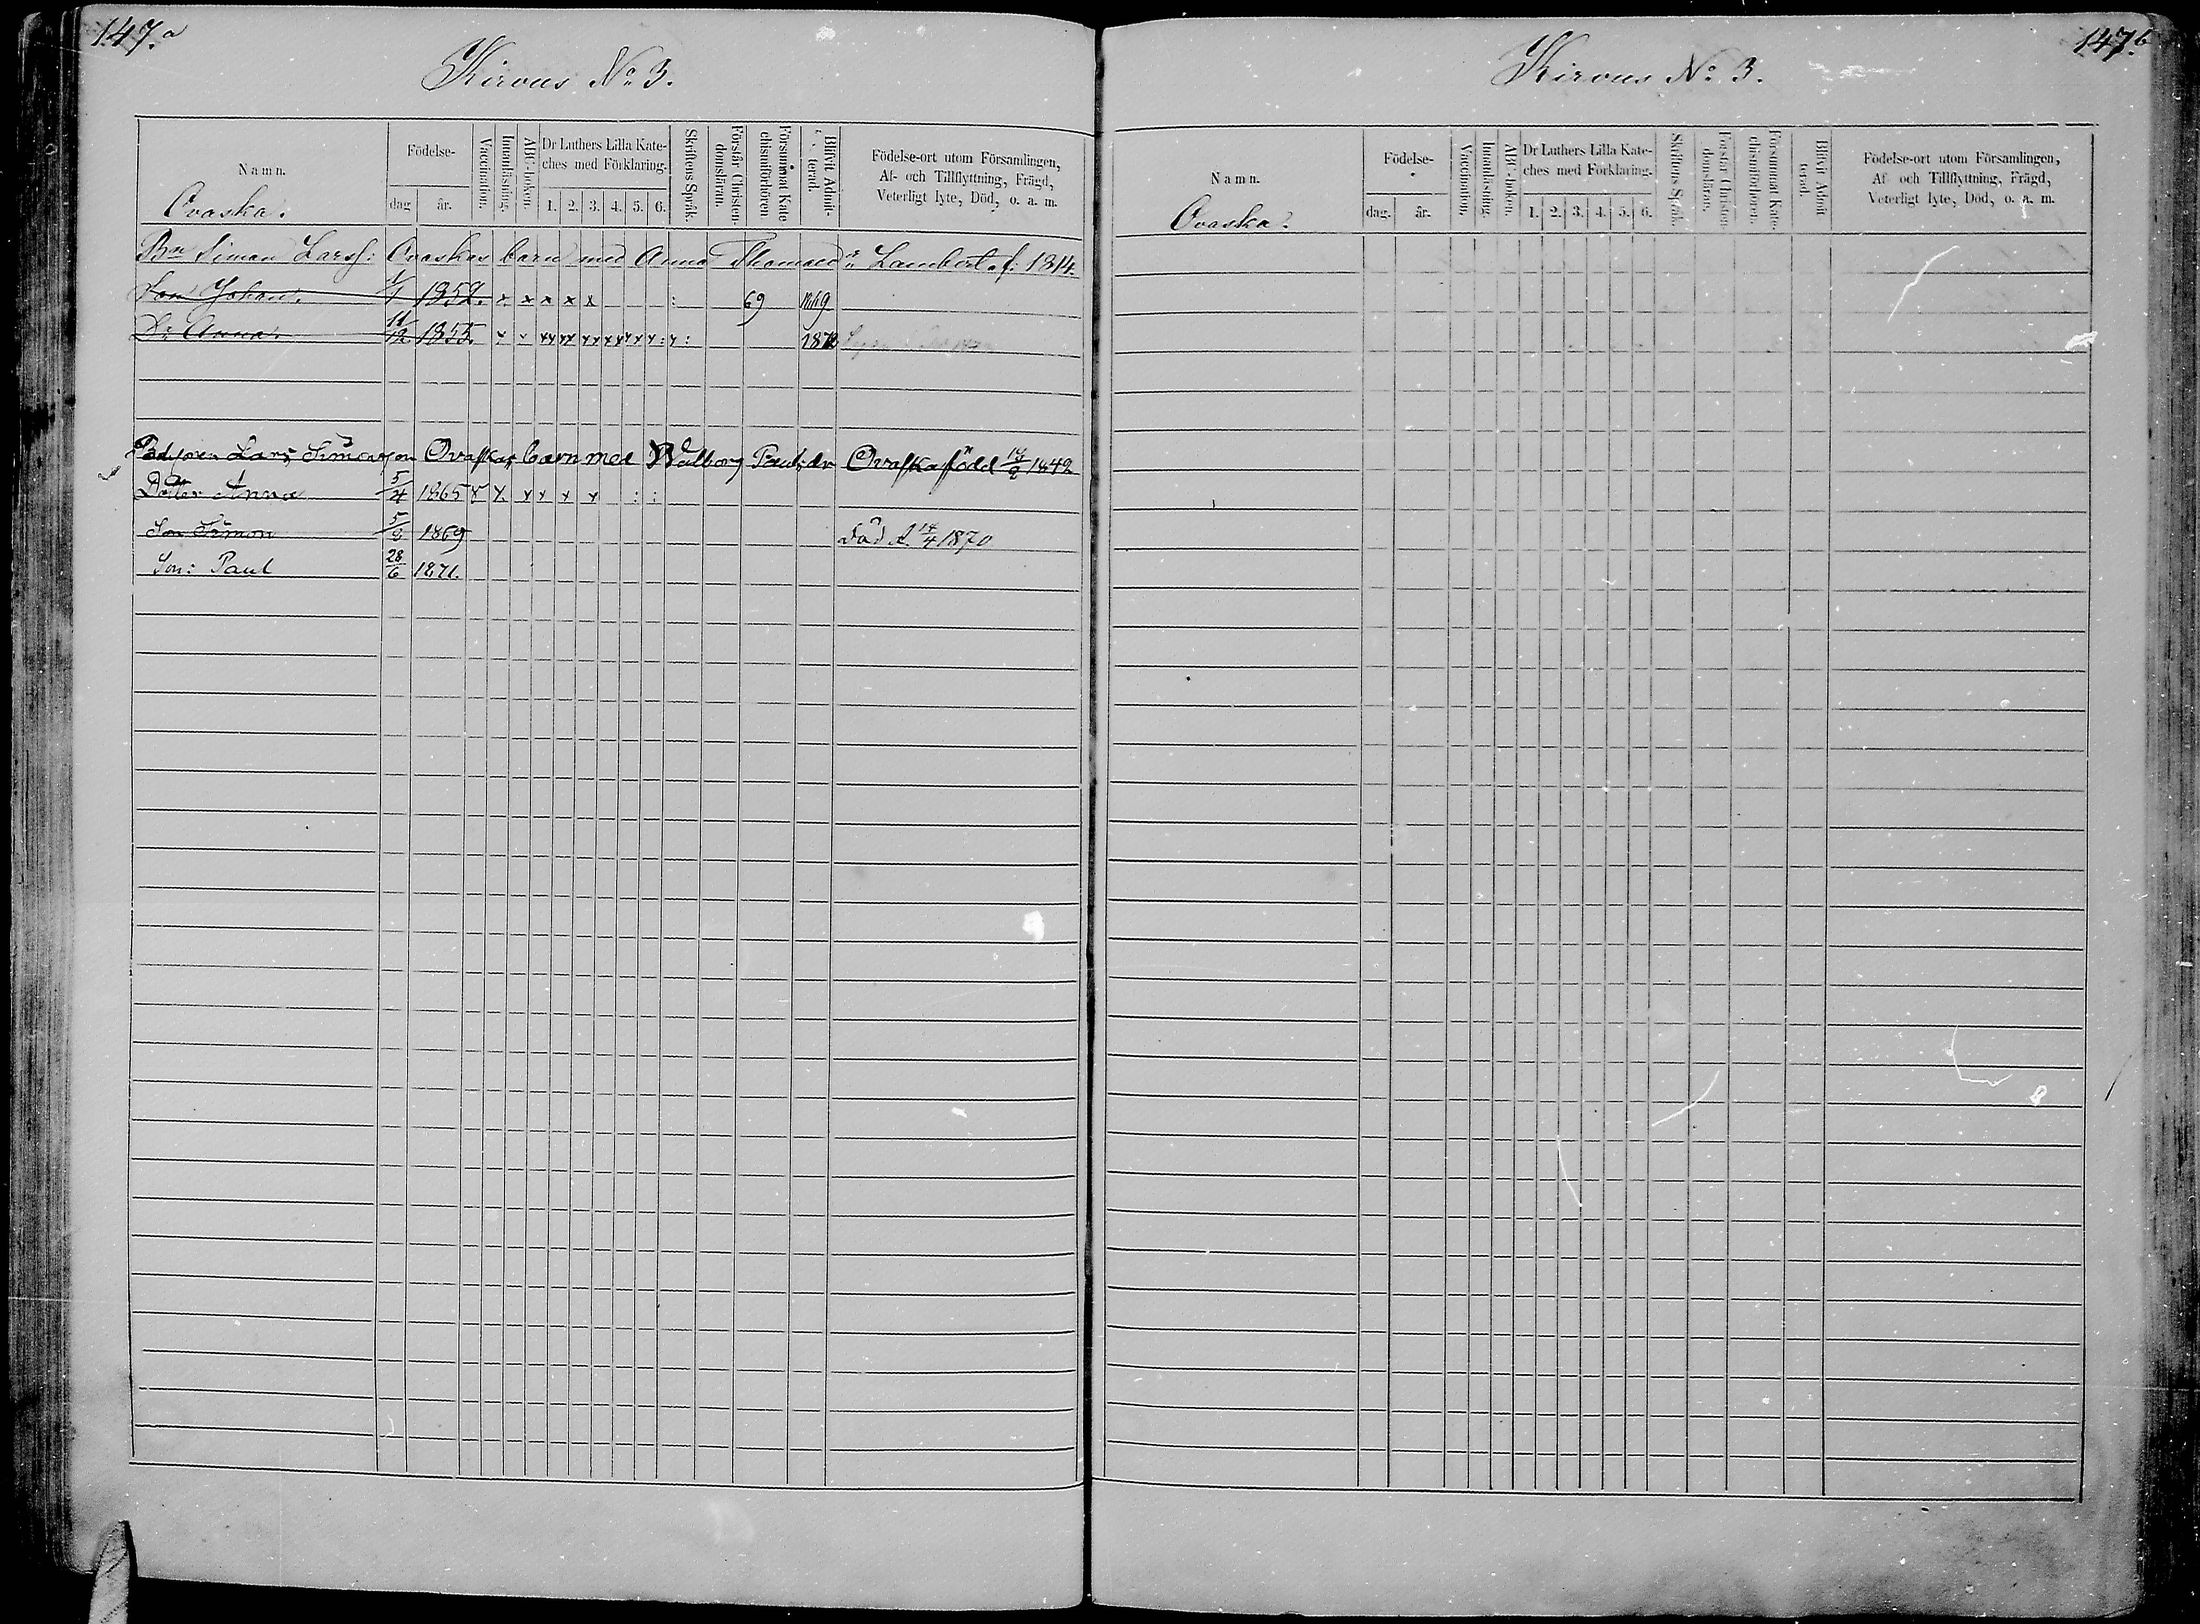 147.a
Kirvus No 3.
Namn.
Ovaska.
Födelse-
dag
år.
Vaccination.
Innanläsning.
ABC-boken.
Dr Luthers Lilla Kate-
ches med Förklaring.
1. 2. 3. 4. 5. 6.
Skriftens Språk.
Förstår Christen-
domsläran.
Försummat Kate-
chismiförhören
Blifvit Admit-
terad.
Födelse-ort utom Församlingen,
Af- och Tillflyttning, Frägd,
Veterligt lyte, Död, o. a. m.
Bn Simon Larss: Ovaskas barn med Anna Thomasdr Lambert f: 1814
Son Johan. 1852. x x x x x : 69 1869
D: Anna. 11/12 1855. x x xx xx xx xx xx x : x : 1872
Lars Simonson Ovaskas barn med Walborg Paulsdr Ovaska född 1842
Dotter Anna 5/4 1865 x x x x x x : :
Son Simon 1869 död d. 14/4 1870
Son: Paul 28/6 1871.
147.b
Kirvus No 3.
Namn.
Ovaska.
Födelse-
dag.
år.
Vaccination.
Innanläsning.
ABC-boken.
Dr Luthers Lilla Kate-
ches med Förklaring.
1. 2. 3. 4. 5. 6.
Skriftens Språk.
Förstår Christen-
domsläran.
Försummat Kate-
chismiförhören.
Blifvit Admit-
terad.
Födelse-ort utom Församlingen,
Af- och Tillflyttning, Frägd,
Veterligt lyte, Död, o. a. m.